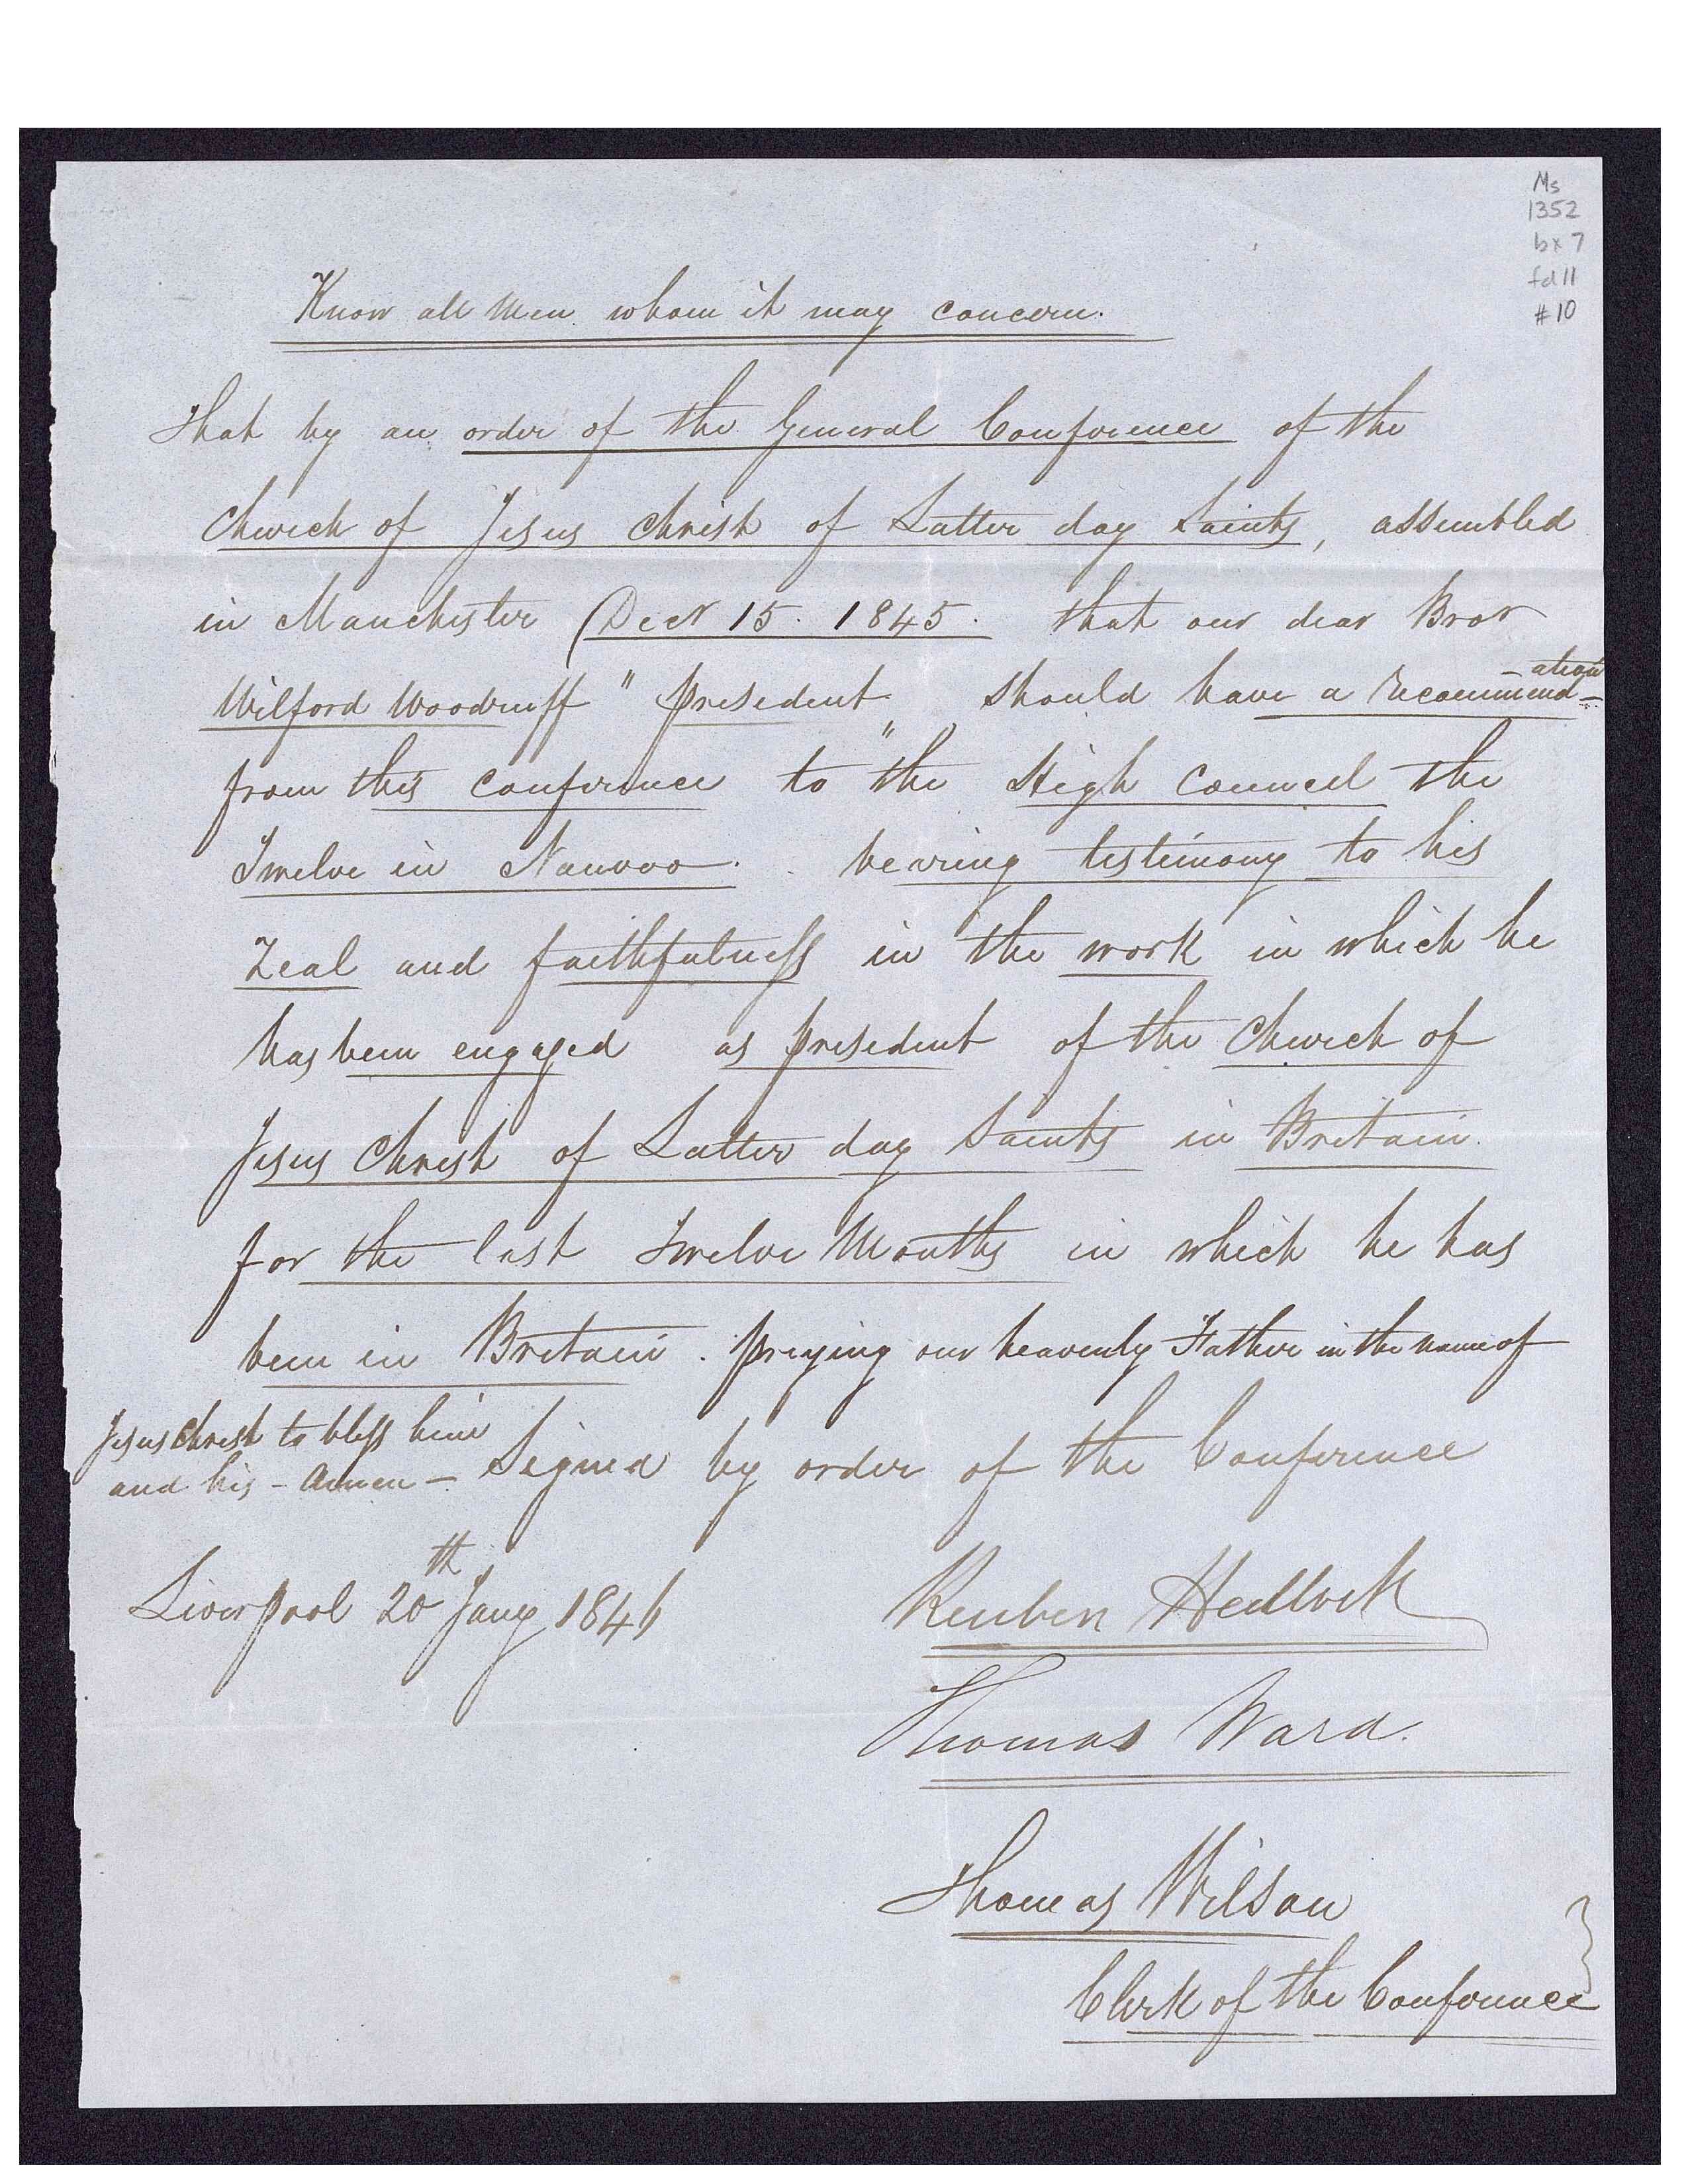 Ms
1352
bx 7
fd 11
#10
Know all Men whom it may concern.
That by an order of the General Conference of the
Church of Jesus Christ of Latter day Saints, assembled
in Manchester (Decr 15. 1845. that our dear Bror
Wilford Woodruff "president" should have a recommend-
-ation
from this conference to the High Council the
Twelve in Nauvoo. bearing testimony to his
Zeal and faithfulness in the work in which he
has been engaged as president of the Church of
Jesus Christ of Latter day Saints in Britain.
for the last Twelve Months in which he has
been in Britain. praying our heavenly Father in the name of
Jesus Christ to bless him
and his - Amen - Signed by order of the Conference
Liverpool 20th Jany 1846
Reuben Hedlock
Thomas Ward.
Thomas Wilson
Clerk of the Conference